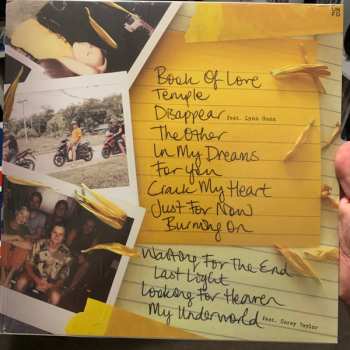 Book Of Love
Temple
Disappear feat. Lynn Gunn
The Other
In My Dreams
For You
Crack My Heart
Just For Now
Burning On
Waiting For The End
Last Light
Looking For Heaven
My Underworld feat. Corey Taylor